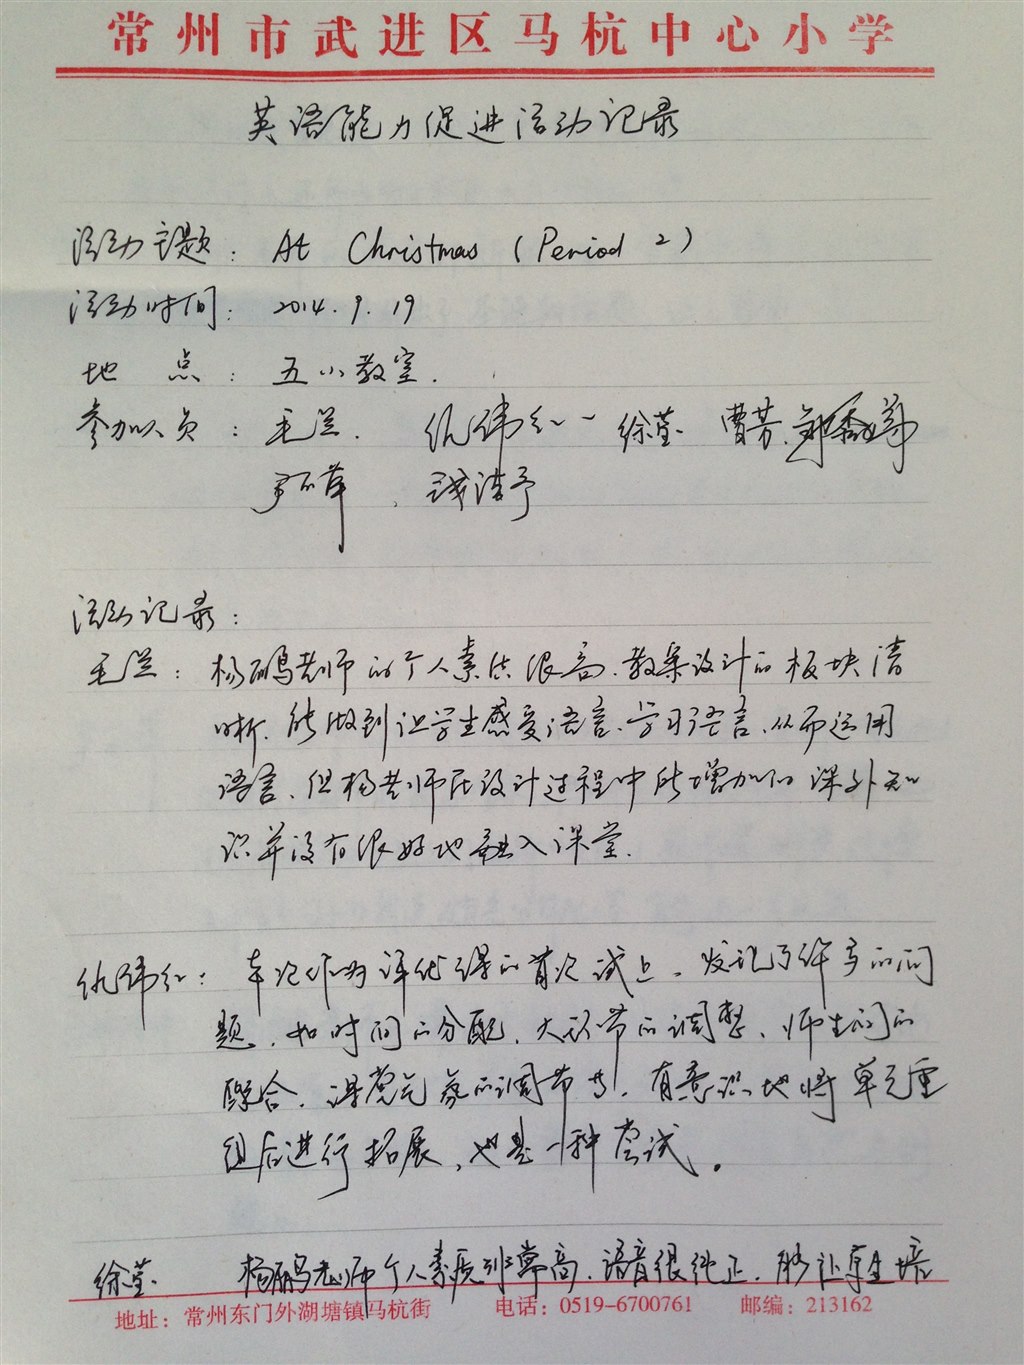 常州市武进区马杭中心小学
英语能力促进活动记录
活动主题：At Christmas（Period 2）
活动时间：2014.9.19
地 点：五小教室.
参加人员：毛 仇 红 徐莹 曹芳
钱洁予
活动记录：
毛 ：杨鹏老师的个人素质很高、教案设计的板块清
晰、能做到让学生感受语言、学习语言、从而运用
语言、但杨老师在设计过程中所增加的课外知
识并没有很好地融入课堂.
仇 红：本次作为评优课的首次试上，发现了许多的问
题、如时间的分配、大环节的调整、师生间的
配合、课堂气氛的调节等，有意识地将单元重
组后进行拓展，也是一种尝试。
徐莹 杨鹏老师个人素质非常高、语音很纯正、能让学生
地址：常州东门外湖塘镇马杭街 电话：0519-6700761 邮编：213162